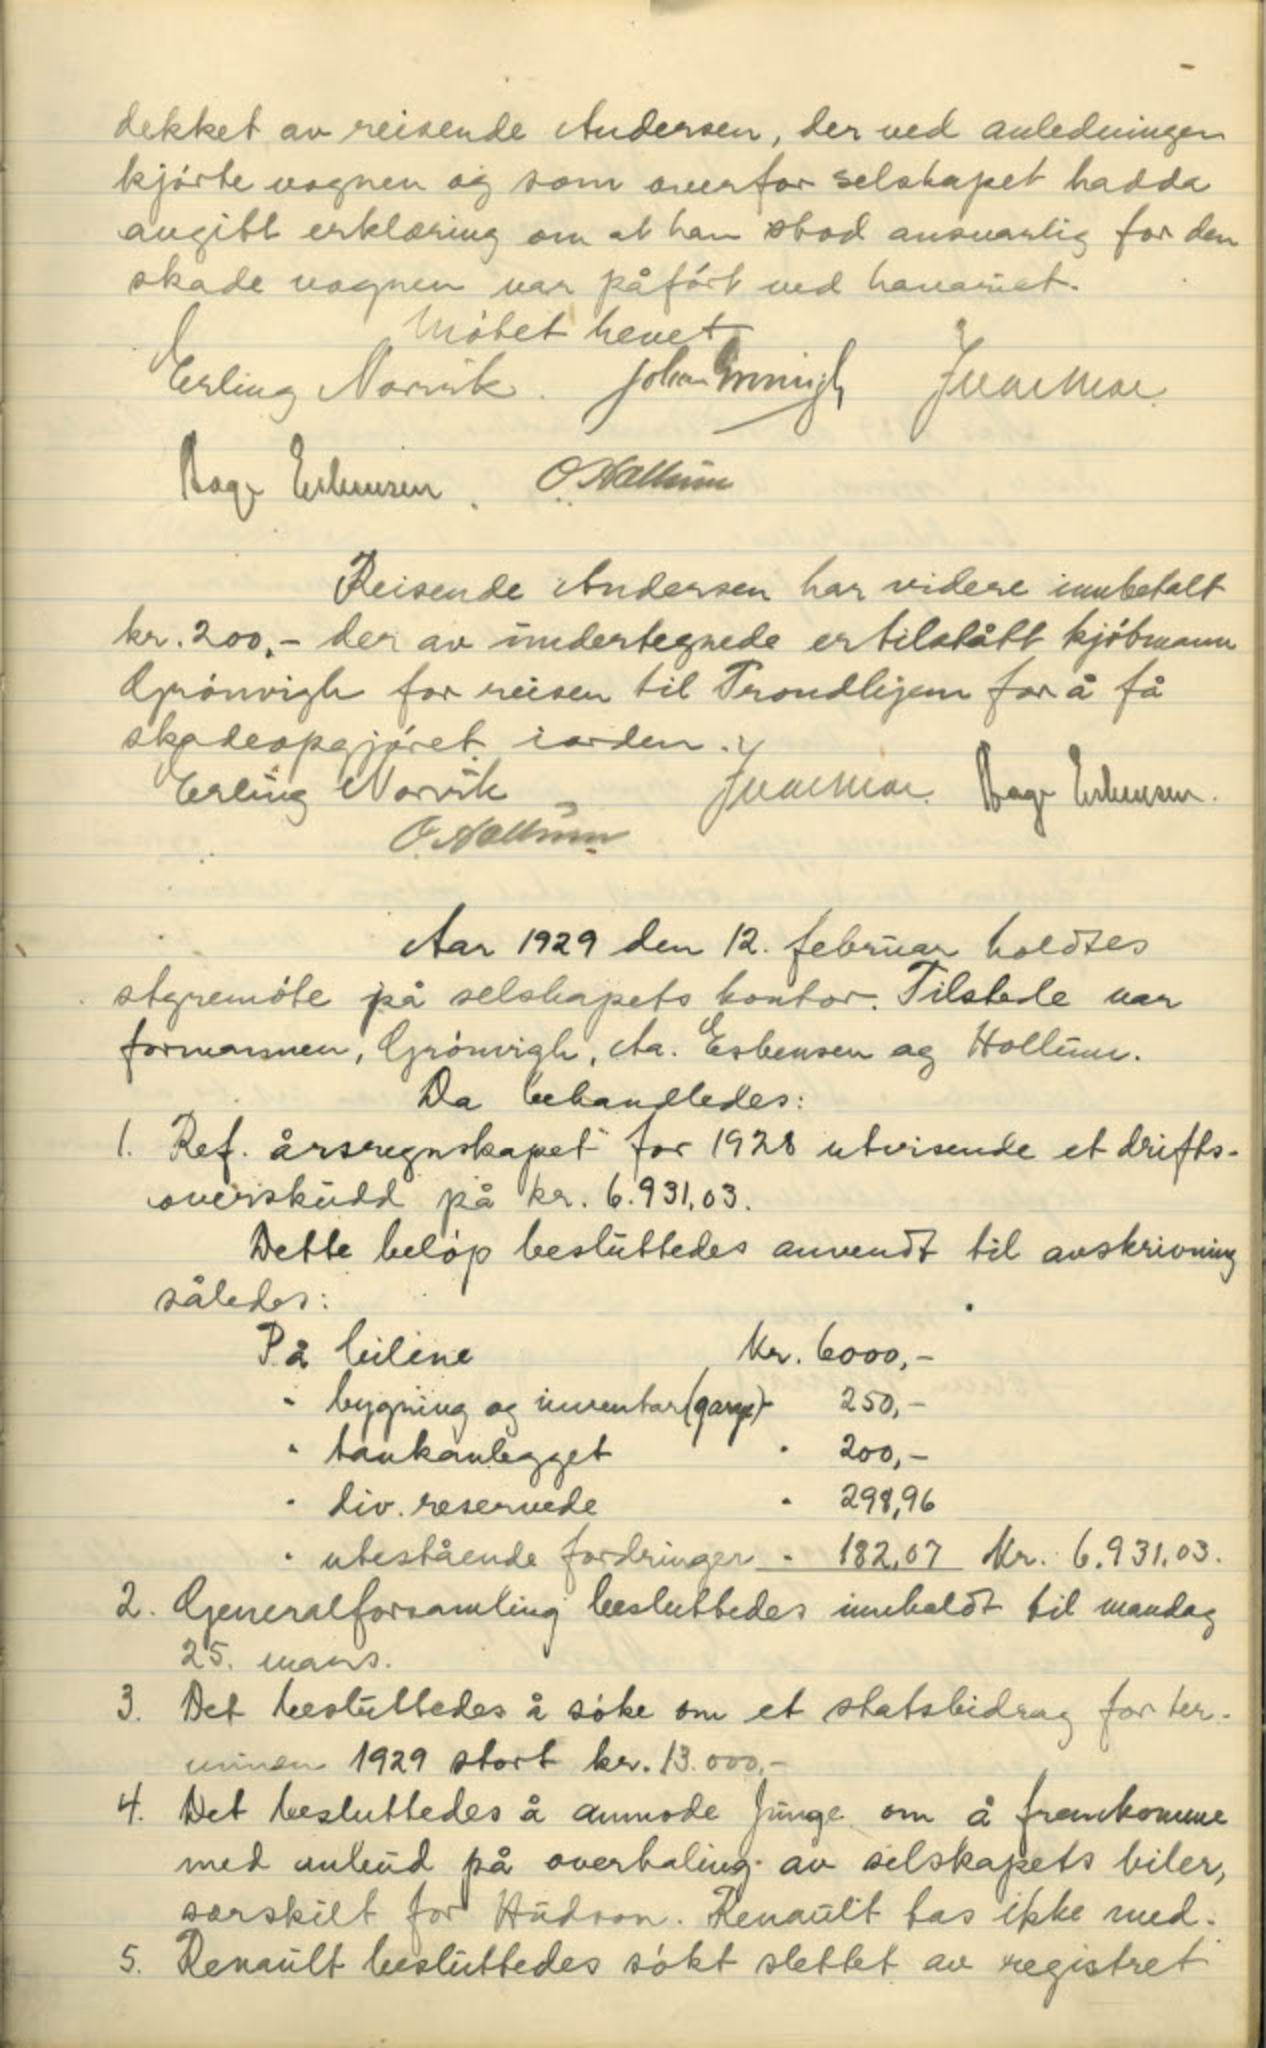 dekket av reisende Andersen, der ved anledningen
kjørte vognen og som overfor selskapet hadde
avgitt erklæring om at han stod ansvarlig for den
skade vognen var påført ved havariet.
Møtet hevet
Erling Norvik. Johan Grønvigh
Aage Esbensen. O. Hollum
Reisende Andersen har videre innbetalt
kr. 200,- der av undertegnede er tilstått kjøbmann
Grønvigh for reisen til Trondhjem for å få
skadeopgjøret iorden.
Erling Norvik Aage Esbensen.
O. Hollum
Aar 1929 den 12. februar holdtes
styremøte på selskapets kontor. Tilstede var
formannen, Grønvigh, Aa. Esbensen og Hollum.
Da behandledes:
1. Ref. årsregnskapet for 1928 utvisende et drifts-
overskudd på kr. 6.931,03.
Dette beløp besluttedes anvendt til avskrivning
således:
På bilene Kr. 6000,-
" bygning og inventar (garage) " 250,-
" tankanlegget " 200,-
" div. reservede " 298,96
" utestående fordringer " 182,07 Kr. 6.931,03.
2. Generalforsamling besluttedes innkaldt til mandag
25. mars.
3. Det besluttedes å søke om et statsbidrag for ter-
minen 1929 stort kr. 13.000,-
4. Det besluttedes å anmode Junge om å fremkomme
med anbud på overhaling av selskapets biler,
særskilt for Hudson. Renault tas ikke med.
5. Renault besluttedes søkt slettet av registret